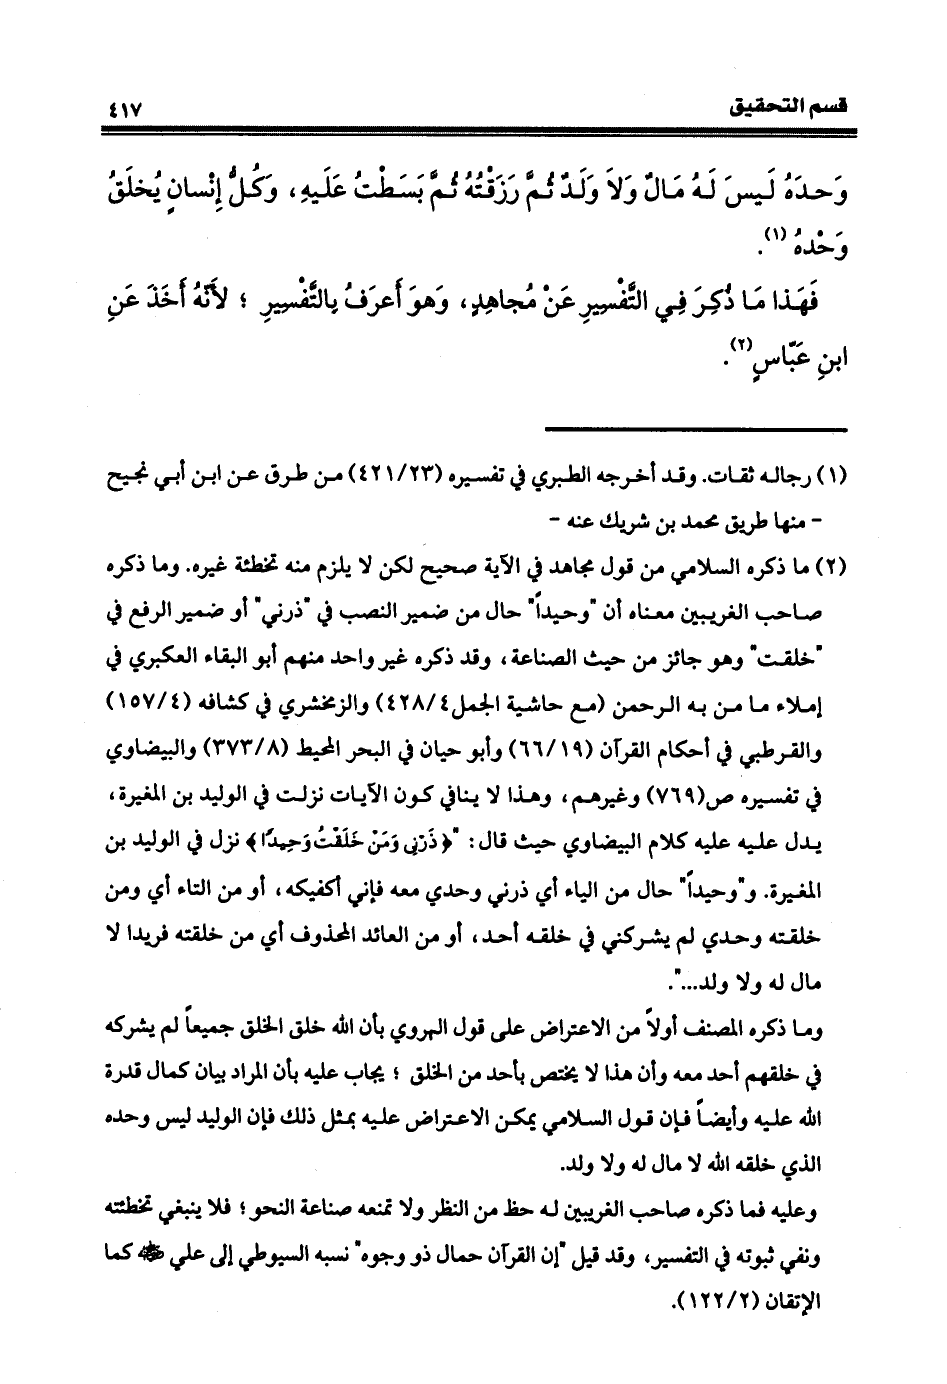 قسم التحقيق ٤١٧
وَحدَهُ لَيسَ لَهُ مَالٌ وَلاَ وَلَدٌ ثُمَّ رَزَقْتُهُ ثُمَّ بَسَطْتُ عَلَيهِ، وَكُلُّ إِنْسانٍ يُخلَقُ
وَحْدهُ (١).
فَهَذا مَا ذُكِرَ فِي التَّفْسِيرِ عَنْ مُجاهدٍ، وَهوَ أَعرَفُ بِالتَّفْسِيرِ ؛ لأَنَّهُ أَخَذَ عَنِ
ابنِ عَبّاسٍ (٢).
(١) رجاله ثقات. وقد أخرجه الطبري في تفسيره (٤٢١/٢٣) من طرق عن ابن أبي نجيح
- منها طريق محمد بن شريك عنه -
(٢) ما ذكره السلامي من قول مجاهد في الآية صحيح لكن لا يلزم منه تخطئة غيره. وما ذكره
صاحب الغريبين معناه أن "وحيداً" حال من ضمير النصب في "ذرني" أو ضمير الرفع في
"خلقت" وهو جائز من حيث الصناعة، وقد ذكره غير واحد منهم أبو البقاء العكبري في
إملاء ما من به الرحمن (مع حاشية الجمل٤٢٨/٤) والزمخشري في كشافه (١٥٧/٤)
والقرطبي في أحكام القرآن (٦٦/١٩) وأبو حيان في البحر المحيط (٣٧٣/٨) والبيضاوي
في تفسيره ص(٧٦٩) وغيرهم، وهذا لا ينافي كون الآيات نزلت في الوليد بن المغيرة،
يدل عليه عليه كلام البيضاوي حيث قال: "﴿ذَرْنِي وَمَنْ خَلَقْتُ وَحِيدًا﴾ نزل في الوليد بن
المغيرة. و"وحيداً" حال من الياء أي ذرني وحدي معه فإني أكفيكه، أو من التاء أي ومن
خلقته وحدي لم يشركني في خلقه أحد، أو من العائد المحذوف أي من خلقته فريدا لا
مال له ولا ولد...".
وما ذكره المصنف أولاً من الاعتراض على قول الهروي بأن الله خلق الخلق جميعاً لم يشركه
في خلقهم أحد معه وأن هذا لا يختص بأحد من الخلق ؛ يجاب عليه بأن المراد بيان كمال قدرة
الله عليه وأيضاً فإن قول السلامي يمكن الاعتراض عليه بمثل ذلك فإن الوليد ليس وحده
الذي خلقه الله لا مال له ولا ولد.
وعليه فما ذكره صاحب الغريبين له حظ من النظر ولا تمنعه صناعة النحو؛ فلا ينبغي تخطئته
ونفي ثبوته في التفسير، وقد قيل "إن القرآن حمال ذو وجوه" نسبه السيوطي إلى علي ﷺ كما
الإتقان (١٢٢/٢).